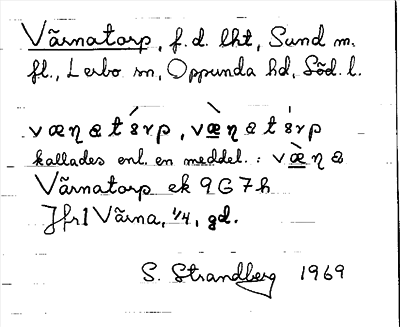 Värnatorp, f. d. lht, Sund m.
fl., Lerbo sn, Oppunda hd, Söd. l.
kallades enl. en meddel. :
Värnatorp ek 9G7h
Jfr 1 Värna, 1/4, gd.
S. Strandberg 1969